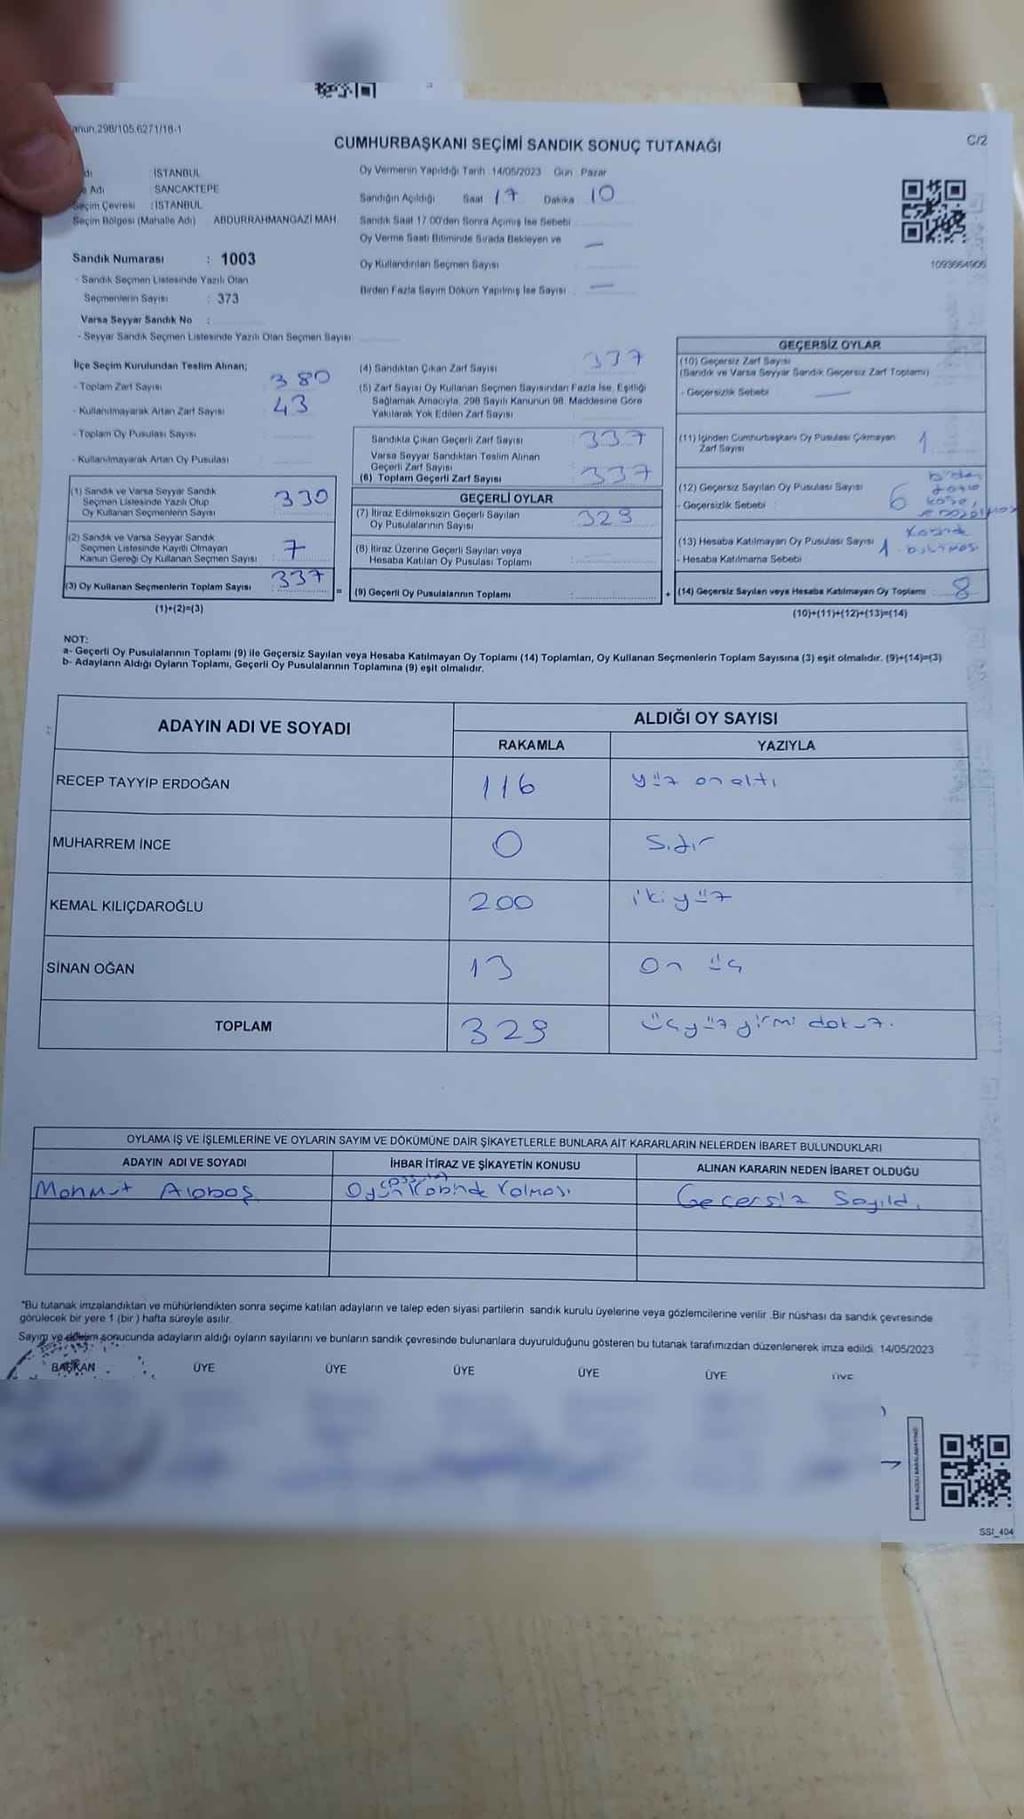 anun.298/105.6271/18-1
CUMHURBAŞKANI SEÇİMİ SANDIK SONUÇ TUTANAĞI
C/2
dı : İSTANBUL
e Adı : SANCAKTEPE
Seçim Çevresi : İSTANBUL
Seçim Bölgesi (Mahalle Adı) ABDURRAHMANGAZİ MAH.
Sandık Numarası : 1003
- Sandık Seçmen Listesinde Yazılı Olan
Seçmenlerin Sayısı : 373
Varsa Seyyar Sandık No :
- Seyyar Sandık Seçmen Listesinde Yazılı Olan Seçmen Sayısı
Oy Vermenin Yapıldığı Tarih 14/05/2023 Gün Pazar
Sandığın Açıldığı Saat 17 Dakika 10
Sandık Saat 17.00'den Sonra Açımış İse Sebebi
Oy Verme Saati Bitiminde Sırada Bekleyen ve —
Oy Kullandırılan Seçmen Sayısı
Birden Fazla Sayım Döküm Yapılmış İse Sayısı —
1093664906
İlçe Seçim Kurulundan Teslim Alınan;
- Toplam Zarf Sayısı 380
- Kullanılmayarak Artan Zarf Sayısı 43
- Toplam Oy Pusulası Sayısı
- Kullanılmayarak Artan Oy Pusulası
(1) Sandık ve Varsa Seyyar Sandık
Seçmen Listesinde Yazılı Olup
Oy Kullanan Seçmenlerin Sayısı 330
(2) Sandık ve Varsa Seyyar Sandık
Seçmen Listesinde Kayıtlı Olmayan
Kanun Gereği Oy Kullanan Seçmen Sayısı 7
(3) Oy Kullanan Seçmenlerin Toplam Sayısı 337
(1)+(2)=(3)
(4) Sandıktan Çıkan Zarf Sayısı 337
(5) Zarf Sayısı Oy Kullanan Seçmen Sayısından Fazla İse, Eşitliği
Sağlamak Amacıyla, 298 Sayılı Kanunun 98. Maddesine Göre
Yakılarak Yok Edilen Zarf Sayısı
Sandıkta Çıkan Geçerli Zarf Sayısı 337
Varsa Seyyar Sandıktan Teslim Alınan
Geçerli Zarf Sayısı
(6) Toplam Geçerli Zarf Sayısı 337
GEÇERLİ OYLAR
(7) İtiraz Edilmeksizin Geçerli Sayılan
Oy Pusulalarının Sayısı 329
(8) İtiraz Üzerine Geçerli Sayılan veya
Hesaba Katılan Oy Pusulası Toplamı
= (9) Geçerli Oy Pusulalarının Toplamı :
GEÇERSİZ OYLAR
(10) Geçersiz Zarf Sayısı
(Sandık ve Varsa Seyyar Sandık Geçersiz Zarf Toplamı)
- Geçersizlik Sebebi —
(11) İçinden Cumhurbaşkanı Oy Pusulası Çıkmayan
Zarf Sayısı 1
(12) Geçersiz Sayılan Oy Pusulası Sayısı 6
- Geçersizlik Sebebi birden fazla kaşe,
(13) Hesaba Katılmayan Oy Pusulası Sayısı 1
- Hesaba Katılmama Sebebi kabinde bulunması
+ (14) Geçersiz Sayılan veya Hesaba Katılmayan Oy Toplamı 8
(10)+(11)+(12)+(13)=(14)
NOT:
a- Geçerli Oy Pusulalarının Toplamı (9) ile Geçersiz Sayılan veya Hesaba Katılmayan Oy Toplamı (14) Toplamları, Oy Kullanan Seçmenlerin Toplam Sayısına (3) eşit olmalıdır. (9)+(14)=(3)
b- Adayların Aldığı Oyların Toplamı, Geçerli Oy Pusulalarının Toplamına (9) eşit olmalıdır.
ADAYIN ADI VE SOYADI
ALDIĞI OY SAYISI
RAKAMLA YAZIYLA
RECEP TAYYİP ERDOĞAN 116 yüz on altı
MUHARREM İNCE 0 Sıfır
KEMAL KILIÇDAROĞLU 200 iki yüz
SİNAN OĞAN 13 On üç
TOPLAM 329 üçyüz yirmi dokuz.
OYLAMA İŞ VE İŞLEMLERİNE VE OYLARIN SAYIM VE DÖKÜMÜNE DAİR ŞİKAYETLERLE BUNLARA AİT KARARLARIN NELERDEN İBARET BULUNDUKLARI
ADAYIN ADI VE SOYADI İHBAR İTİRAZ VE ŞİKAYETİN KONUSU ALINAN KARARIN NEDEN İBARET OLDUĞU
Mahmut Alabaş Oyun Kabinde Kalması Geçersiz Sayıldı
*Bu tutanak imzalandıktan ve mühürlendikten sonra seçime katılan adayların ve talep eden siyasi partilerin sandık kurulu üyelerine veya gözlemcilerine verilir .Bir nüshası da sandık çevresinde
görülecek bir yere 1 (bir ) hafta süreyle asılır.
Sayım ve döküm sonucunda adayların aldığı oyların sayılarını ve bunların sandık çevresinde bulunanlara duyurulduğunu gösteren bu tutanak tarafımızdan düzenlenerek imza edildi. 14/05/2023
BAŞKAN ÜYE ÜYE ÜYE ÜYE ÜYE ÜYE
SSİ_404